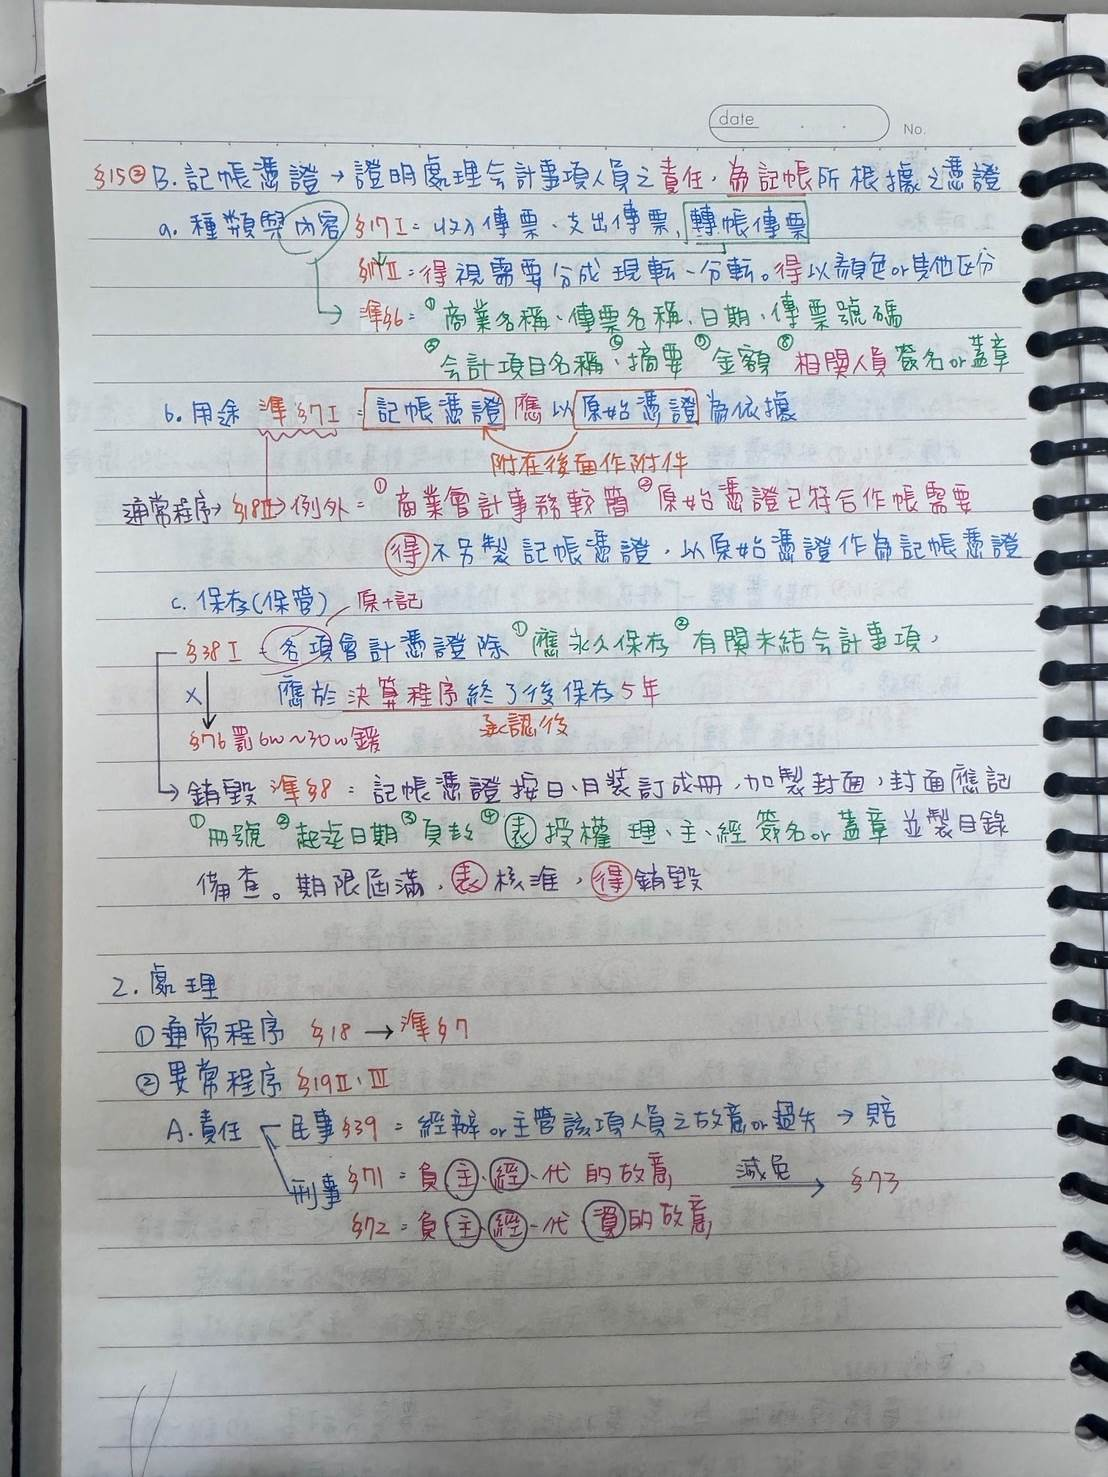 date
No.
§15② B. 記帳憑證 → 證明處理会計事項人員之責任，為記帳所根據之憑證
a. 種類與內容 §17 I = 收入傳票、支出傳票、轉帳傳票
§17 II = 得視需要分成現転、分転。得以顏色or其他区分
準§6 = ① 商業名稱、傳票名稱、日期、傳票號碼
② 会計項目名稱、摘要 金額 相関人員簽名or蓋章
b. 用途 準§7 I = 記帳憑證 應以原始憑證為依據
附在後面作附件
通常程序→ §18 II → 例外 = ① 商業會計事務較簡 ② 原始憑證已符合作帳需要
得不另製記帳憑證，以原始憑證作為記帳憑證
c. 保存(保管) 原+記
§38 I = 各項會計憑證除 ① 應永久保存 ② 有関未結会計事項，
X 應於決算程序終了後保存5年
承認後
§76 罰6w~30w鍰
→ 銷毀 準§8 : 記帳憑證按日、月裝訂成冊，加製封面，封面應記
① 冊號 ② 起迄日期 ③ 頁數 ④ 表授權 理、主、經 簽名or蓋章 並製目錄
備查。期限屆滿，表核准，得銷毀
2. 處理
① 通常程序 §18 → 準§7
② 異常程序 §19 II、III
A. 責任 民事 §39 = 經辦or主管該項人員之故意or過失 → 賠
刑事 §71 = 負、主、經、代 的故意 減免→ §73
§72 = 負、主、經、代、資的故意